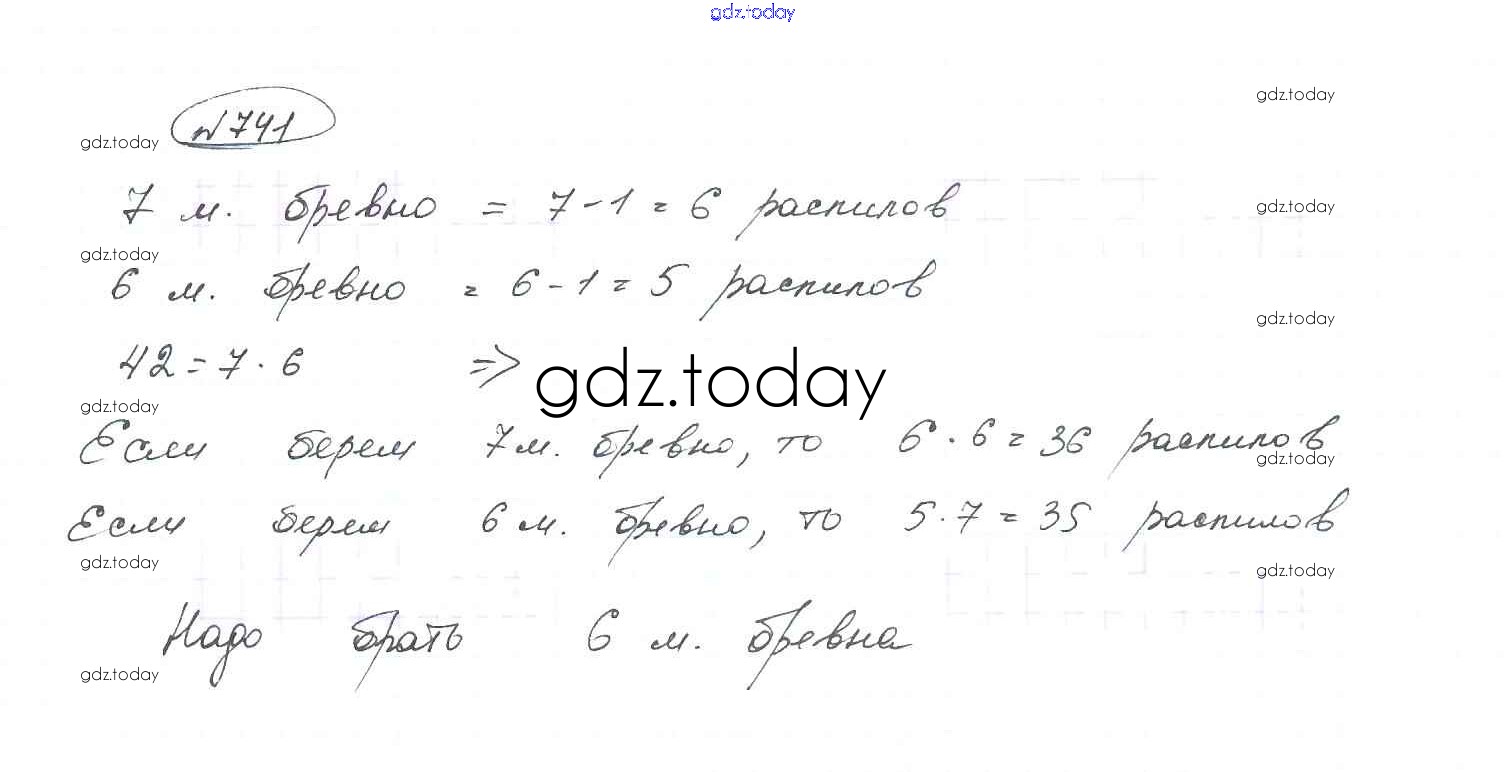 gdz.today
gdz.today
№741
gdz.today
7 м. бревно = 7-1=6 распилов
gdz.today
gdz.today
6 м. бревно = 6-1=5 распилов
gdz.today
42=7·6 => gdz.today
gdz.today
Если берем 7м. бревно, то 6·6=36 распилов
gdz.today
Если берем 6м. бревно, то 5·7=35 распилов
gdz.today
gdz.today
Надо брать 6 м. бревна
gdz.today